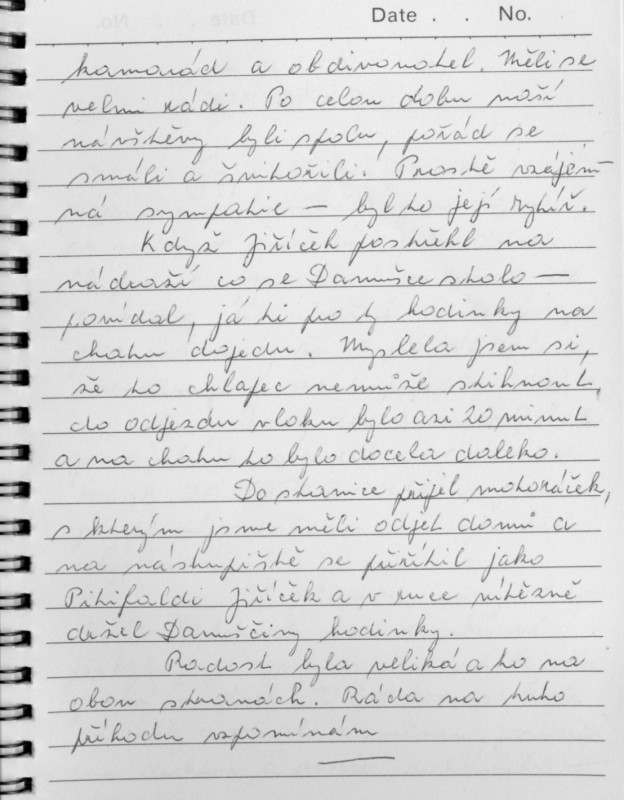 Date . . No.
kamarád a obdivovatel. Měli se
velmi rádi. Po celou dobu naší
návštěvy byli spolu, pořád se
smáli a švitořili. Prostě vzájem-
ná sympatie – byl to její rytíř.
Když Jiříček postřehl na
nádraží co se Danušce stalo –
povídal, já ti pro ty hodinky na
chatu dojedu. Myslela jsem si,
že to chlapec nemůže stihnout,
do odjezdu vlaku bylo asi 20 minut
a na chatu to bylo docela daleko.
Do stanice přijel motoráček,
s kterým jsme měli odjet domů a
na nástupiště se přiřítil jako
Pihifaldi Jiříček a v ruce vítězně
držel Danuščiny hodinky.
Radost byla veliká a to na
obou stranách. Ráda na tuto
příhodu vzpomínám